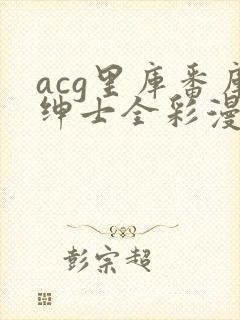 acg里库番库
绅士全彩漫
彭宗超